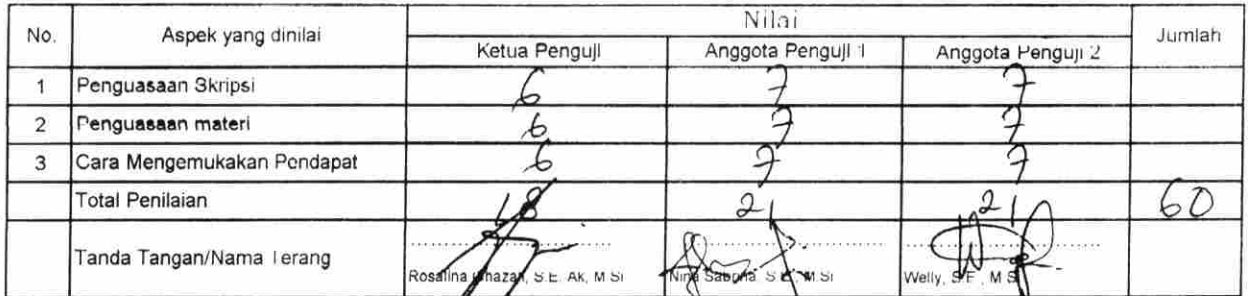 No. Aspek yang dinilai Nilai Jumlah
Ketua Penguji Anggota Penguji 1 Anggota Penguji 2
1 Penguasaan Skripsi 6 7 7
2 Penguasaan materi 6 7 7
3 Cara Mengemukakan Pendapat 6 7 7
Total Penilaian 18 21 21 60
Tanda Tangan/Nama Terang
Rosalina Ghazali, S.E. Ak, M.Si Nina Sabrina S.E., M.Si Welly, S.E., M.Si